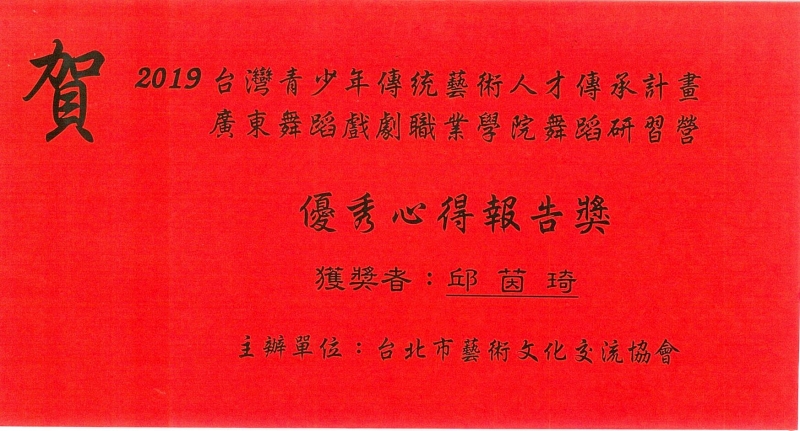 賀
2019 台灣青少年傳統藝術人才傳承計畫
廣東舞蹈戲劇職業學院舞蹈研習營
優秀心得報告獎
獲獎者：邱茵琦
主辦單位：台北市藝術文化交流協會